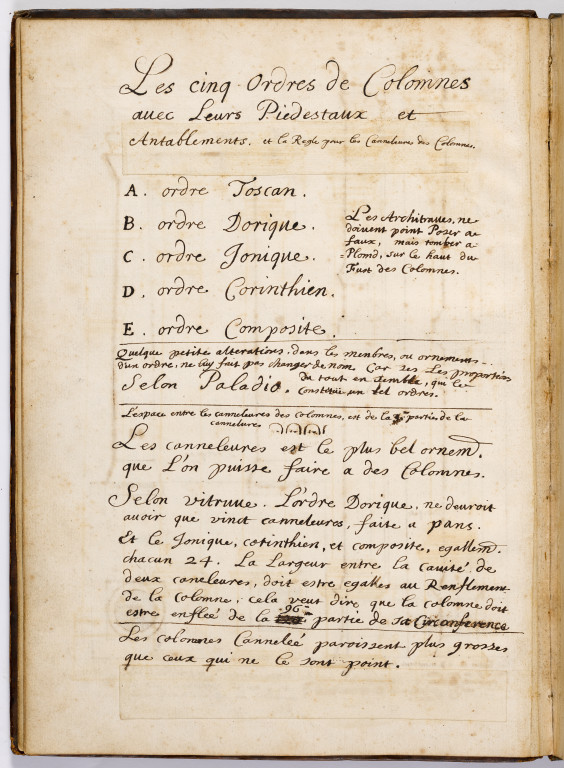 Les cinq Ordres de Colomnes
auec Leurs Piedestaux et
Antablements. et la Regle pour les Canneleures des Colomnes.
A. ordre Toscan.
B. ordre Dorique.
C. ordre Jonique.
D. ordre Corinthien.
E. ordre Composite.
Les Architraues, ne
doiuent point Poser a
faux, mais tomber a-
-Plomd, sur le haut du
Fust des Colomnes.
Quelque petite alterations, dans les menbres, ou ornements
d'un ordre, ne luy fait pas changer de nom. Car ces Les proportions
Selon Paladio. du tout en semble, qui le
constitue un bel ordres.
L'espace entre les canneleures des colomnes, est de la partie de la
cannelure.
Les canneleures est le plus bel ornem.
que L'on puisse faire a des Colomnes.
Selon vitruue. L'ordre Dorique, ne deuroit
auoir que vinct canneleures, faite a pans.
Et le Jonique, corinthien, et composite, egallem.
chacun 24. La Largeur entre la cauité de
deux caneleures, doit estre egalles au Renflement
de la colomne, cela veut dire que la colomne doit
estre enfleé de la 96 partie de sa Circonference
Les colomnes Canneleé paroissent plus grosses
que ceux qui ne le sont point.